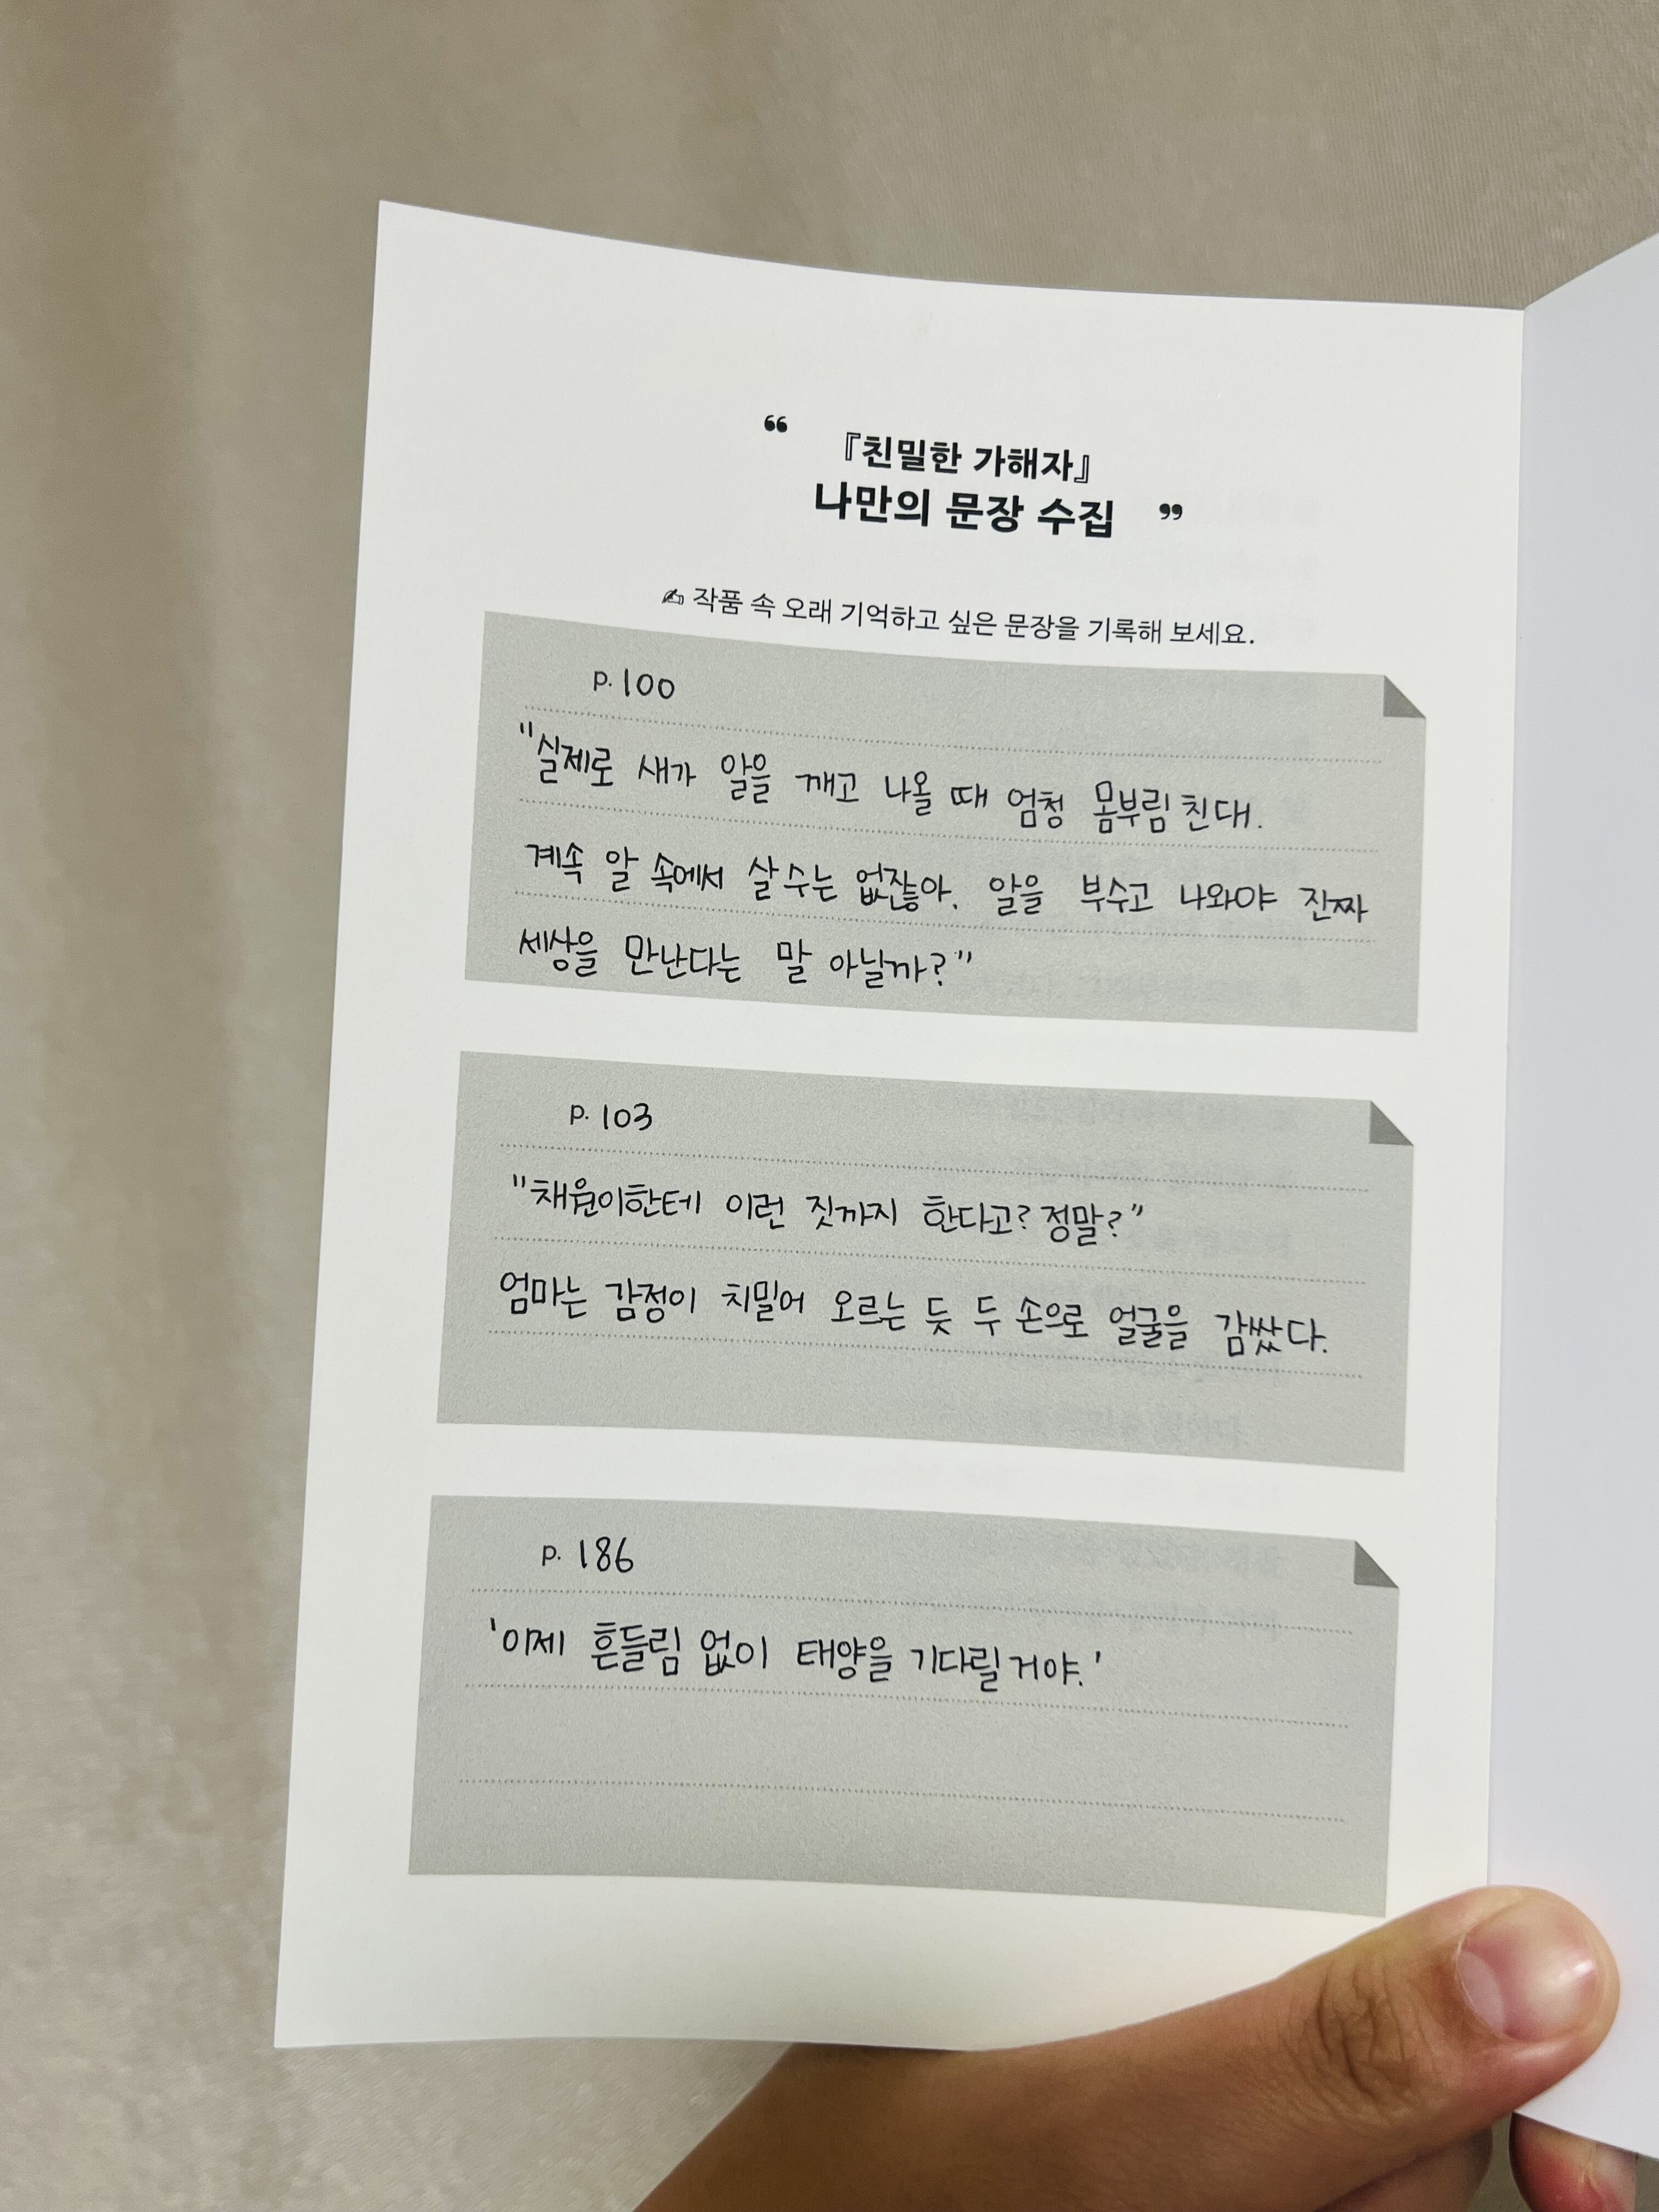 “ 『친밀한 가해자』
나만의 문장 수집 ”
✍ 작품 속 오래 기억하고 싶은 문장을 기록해 보세요.
p. 100
"실제로 새가 알을 깨고 나올 때 엄청 몸부림친대.
계속 알 속에서 살 수는 없잖아. 알을 부수고 나와야 진짜
세상을 만난다는 말 아닐까?"
p. 103
"채원이한테 이런 짓까지 한다고? 정말?"
엄마는 감정이 치밀어 오르는 듯 두 손으로 얼굴을 감쌌다.
p. 186
'이제 흔들림 없이 태양을 기다릴 거야.'